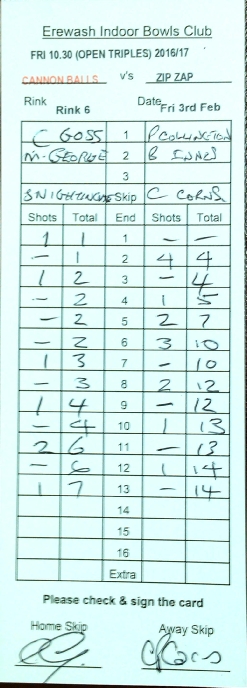 Erewash Indoor Bowls Club
FRI 10.30 (OPEN TRIPLES) 2016/17
CANNON BALLS v's ZIP ZAP
Rink Rink 6 Date Fri 3rd Feb
C GOSS 1 P COLLINGTON
M. GEORGE 2 B INNES
3
S NIGHTINGALE Skip C CORNS
Shots Total End Shots Total
1 1 1 - -
- 1 2 4 4
1 2 3 - 4
- 2 4 1 5
- 2 5 2 7
- 2 6 3 10
1 3 7 - 10
- 3 8 2 12
1 4 9 - 12
- 4 10 1 13
2 6 11 - 13
- 6 12 1 14
1 7 13 - 14
14
15
16
Extra
Please check & sign the card
Home Skip Away Skip